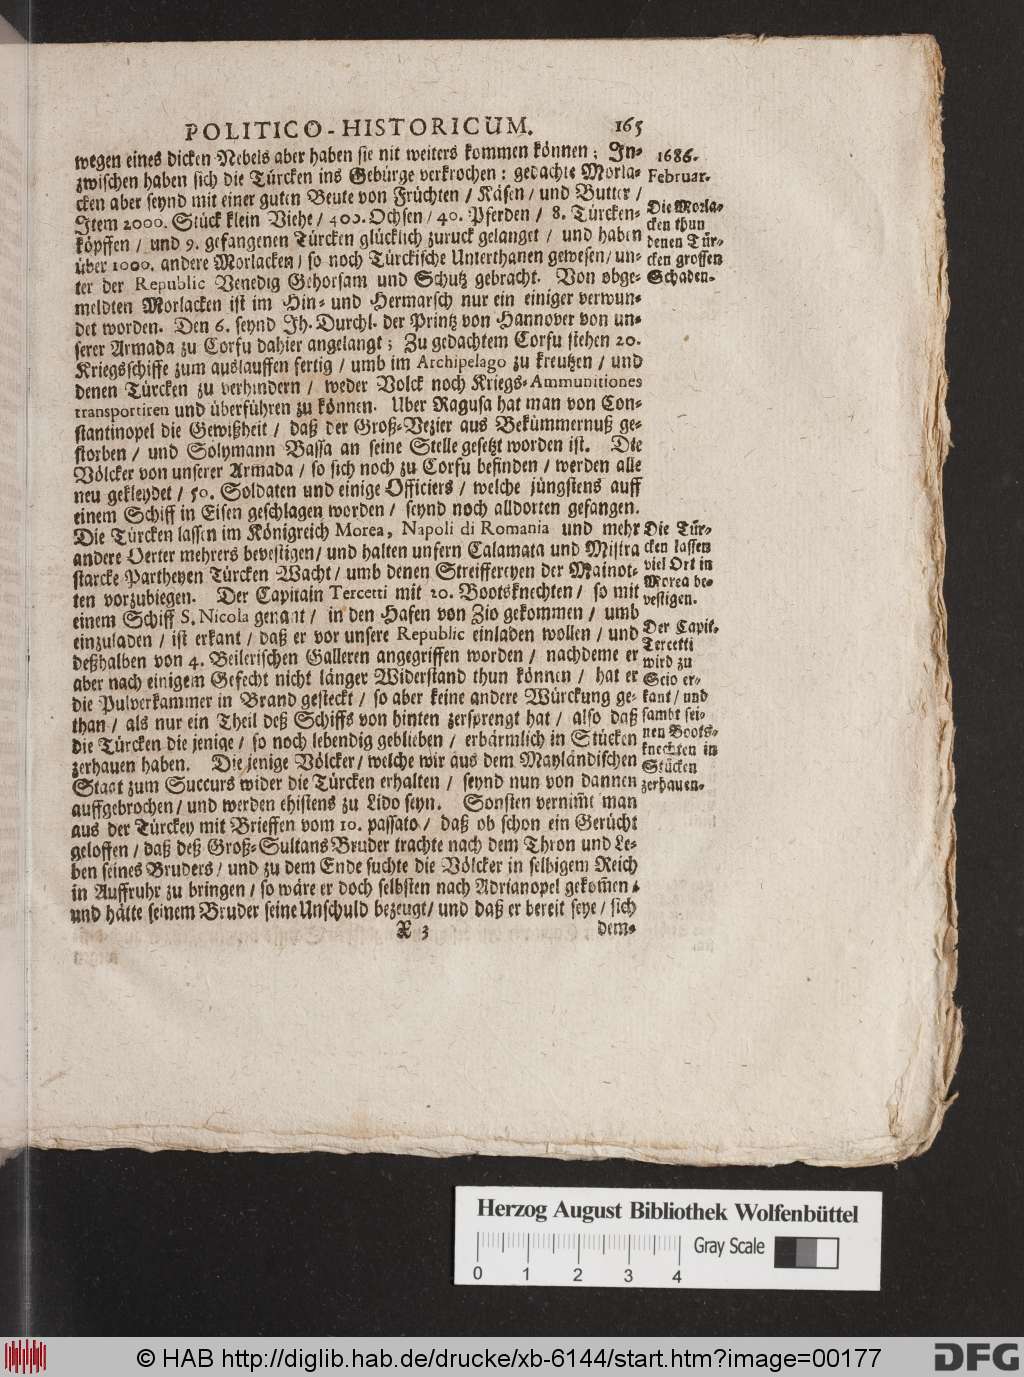 POLITICO-HISTORICUM. 165
wegen eines dicken Nebels aber haben sie nit weiters kommen können; In-
zwischen haben sich die Türcken ins Gebürge verkrochen: gedachte Morla-
cken aber seynd mit einer guten Beute von Früchten / Käsen / und Butter /
Item 2000. Stück klein Viehe / 400. Ochsen / 40. Pferden / 8. Türcken-
köpffen / und 9. gefangenen Türcken glücklich zuruck gelanget / und haben
über 1000. andere Morlacken / so noch Türckische Unterthanen gewesen / un-
ter der Republic Venedig Gehorsam und Schutz gebracht. Von obge-
meldten Morlacken ist im Hin- und Hermarsch nur ein einiger verwun-
det worden. Den 6. seynd Ih. Durchl. der Printz von Hannover von un-
serer Armada zu Corfu dahier angelangt; Zu gedachtem Corfu stehen 20.
Kriegsschiffe zum auslauffen fertig / umb im Archipelago zu kreutzen / und
denen Türcken zu verhindern / weder Volck noch Kriegs-Ammunitiones
transportiren und überführen zu können. Uber Ragusa hat man von Con-
stantinopel die Gewißheit / daß der Groß-Vezier aus Bekümmernuß ge-
storben / und Solymann Bassa an seine Stelle gesetzt worden ist. Die
Völcker von unserer Armada / so sich noch zu Corfu befinden / werden alle
neu gekleydet / 50. Soldaten und einige Officiers / welche jüngstens auff
einem Schiff in Eisen geschlagen worden / seynd noch alldorten gefangen.
Die Türcken lassen im Königreich Morea, Napoli di Romania und mehr
andere Oerter mehrers bevestigen / und halten unfern Calamata und Mistra
starcke Partheyen Türcken Wacht / umb denen Streiffereyen der Mainot-
ten vorzubiegen. Der Capitain Tercetti mit 20. Bootsknechten / so mit
einem Schiff S. Nicola genant / in den Hafen von Zio gekommen / umb
einzuladen / ist erkant / daß er vor unsere Republic einladen wollen / und
deßhalben von 4. Beilerischen Galleren angegriffen worden / nachdeme er
aber nach einigem Gefecht nicht länger Widerstand thun können / hat er
die Pulverkammer in Brand gesteckt / so aber keine andere Würckung ge-
than / als nur ein Theil deß Schiffs von hinten zersprengt hat / also daß
die Türcken die jenige / so noch lebendig geblieben / erbärmlich in Stücken
zerhauen haben. Die jenige Völcker / welche wir aus dem Mayländischen
Staat zum Succurs wider die Türcken erhalten / seynd nun von dannen
auffgebrochen / und werden ehistens zu Lido seyn. Sonsten vernim̃t man
aus der Türckey mit Brieffen vom 10. passato / daß ob schon ein Gerücht
geloffen / daß deß Groß-Sultans Bruder trachte nach dem Thron und Le-
ben seines Bruders / und zu dem Ende suchte die Völcker in selbigem Reich
in Auffruhr zu bringen / so wäre er doch selbsten nach Adrianopel gekom̃en /
und hätte seinem Bruder seine Unschuld bezeugt / und daß er bereit seye / sich
X 3 dem-
1686.
Februar.
Die Morla-
cken thun
denen Tür-
cken grossen
Schaden.
Die Tür-
cken lassen
viel Ort in
Morea be-
vestigen.
Der Capit.
Tercetti
wird zu
Scio er-
kant / und
sambt sei-
nen Boots-
knechten in
Stücken
zerhauen.
Herzog August Bibliothek Wolfenbüttel
0 1 2 3 4
Gray Scale
© HAB http://diglib.hab.de/drucke/xb-6144/start.htm?image=00177
DFG